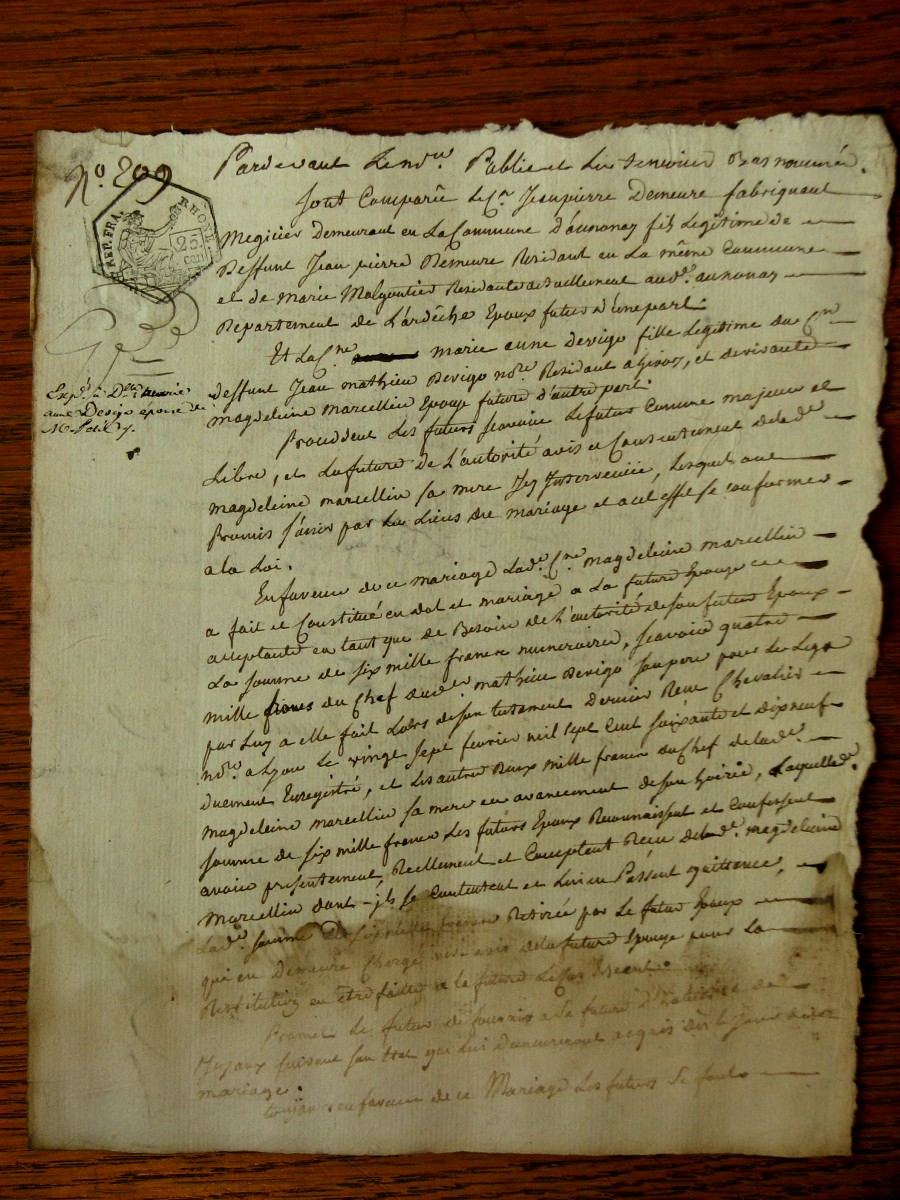 No. 299
REP. FRA.
RHONE
25 CEN
Expé. à Dlle. Marie
anne Devigo épouse de
M. Petit
Pardevant Le nre. Public et Les temoins Bas nommés
Sont Comparûs Le Cn. Jeanpierre Demeure fabriquant
Megicier Demeurant en La Commune D'annonay fils Legitime de
Deffunt Jean pierre Demeure Residant en La même Commune
et de Marie Malgontier Residante actuellement audt. annonay
Departement de L'ardêche Epoux futur d'une part.
Et La Cne. marie anne Devigo fille Legitime du Cn.
deffunt Jean mathieu Devigo nore. Residant a Givors, et de vivante
magdeleine marcellin Epouse future d'autre part.
Procedent Les futurs scavoir Le futur Comme majeur et
Libre, et La future de L'autorité avis et Consentement de lade.
magdeleine marcellin sa mere Icy Intervenüe, Lesquels ont
Promis s'unir par Les Liens du mariage et a cet effet se conformer
a la Loi.
En faveur de ce mariage Lade. Cne. magdeleine marcellin
a fait et Constitué en dot et mariage a La future Epouse
acceptante en tant que de Besoin de L'autorité de son futur Epoux
La somme de six mille francs numeraire, scavoir quatre
mille francs du Chef dudt. mathieu Devigo son pere pour Le Legs
par Luy a elle fait Lors de son testament Dernier Reçu Chevalier
nore. a Lyon Le vingt sept fevrier mil sept Cent soixante et dix neuf
Duement Enregistré, et Les autres Deux mille francs du Chef de lade.
magdeleine marcellin sa mere en avancement de son hoirie, Laquelle de.
somme de six mille francs Les futurs Epoux Reconnaissent et Confessent
avoir présentement, Reellement et Comptant Reçu de lade. magdeleine
Marcellin dont ils se Contentent et Lui en Passent quittance,
Lade. somme de six mille francs Retirée par Le futur Epoux
qui en Demeure Chargé de la future Epouse pour La
Restitution en être faite a la future
Promet Le futur de fournir a La future D'habits et
Joyaux suivant son état qui Lui demeureront acquis dès le Jour de
mariage.
toujours en faveur de ce Mariage Les futurs se font